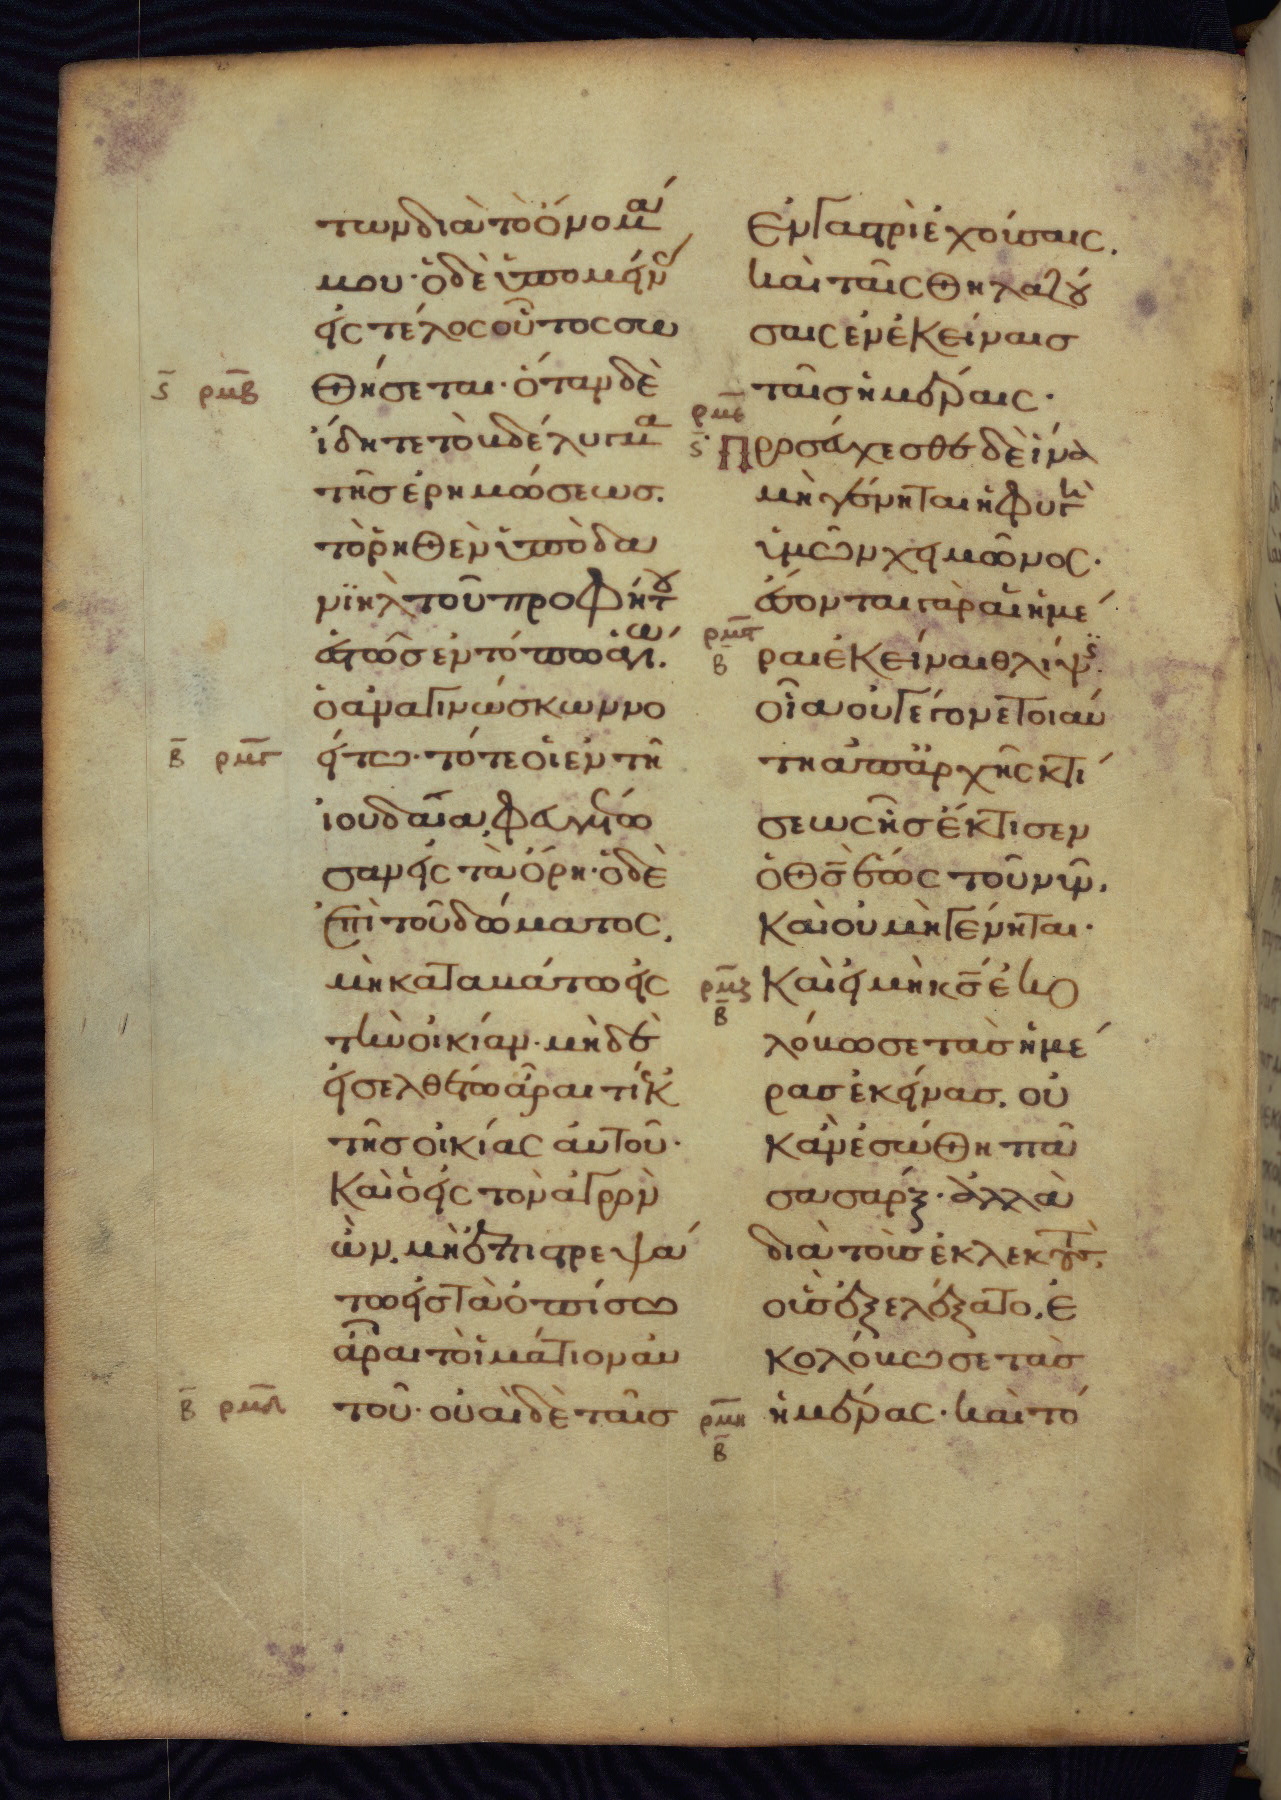 των διὰ τὸ ὄνομά
μου· ὁ δὲ ὑπομείν(ας)
εἰς τέλος οὗτος σω
ϛ̄ ρμ̄β θήσεται· ὅταν δὲ
ἴδητε τὸ βδέλυγμα
τῆς ἐρημώσεως.
τὸ ῥηθὲν ὑπὸ δα
νϊὴλ τοῦ προφήτου
ἑστὼς ἐν τόπω ἁγίω.
ὁ ἀναγινώσκων νο
β̄ ρμ̄γ είτω· τότε οἱ ἐν τῆ
ἰουδαία, φευγέτω
σαν εἰς τὰ ὄρη· ὁ δὲ
ἐπὶ τοῦ δώματος,
μὴ καταβάτω εἰς
τὴν οἰκίαν· μὴ δὲ
εἰσελθέτω ἆραι τί ἐκ
τῆς οἰκίας αὐτοῦ·
Καὶ ὁ εἰς τὸν ἀγρὸν
ὢν. μὴ ἐπιστρεψά
τω εἰς τὰ ὀπίσω
ἆραι τὸ ἱμάτιον αὐ
β̄ ρμ̄δ τοῦ· οὐαὶ δὲ ταῖς
Ἐν γαστρὶ ἐχούσαις.
καὶ ταῖς θηλαζού
σαις ἐν ἐκείναις
ταῖς ἡμέραις·
ρμ̄ε
ϛ̄ Προσεύχεσθε δὲ ἵνα
μὴ γένηται ἡ φυγὴ
ὑμῶν χειμῶνος·
ἔσονται γὰρ αἱ ἡμέ
ρμ̄ϛ
β̄ ραι ἐκεῖναι θλίψις.
οἵα οὐ γέγονε τοιαύ
τη ἀπ' ἀρχῆς κτί
σεως ἧς ἔκτισεν
ὁ θς̄ ἕως τοῦ νῦν.
Καὶ οὐ μὴ γένηται·
ρμ̄ζ Καὶ εἰ μὴ κς̄ ἐκο
β̄
λόβωσε τὰς ἡμέ
ρας ἐκείνας. οὐ
κ ἂν ἐσώθη πᾶ
σα σάρξ· ἀλλὰ
διὰ τοὺς ἐκλεκτούς.
οὓς ἐξελέξατο. ἐ
κολόβωσε τὰς
ρμ̄η ἡμέρας· καὶ τό
β̄